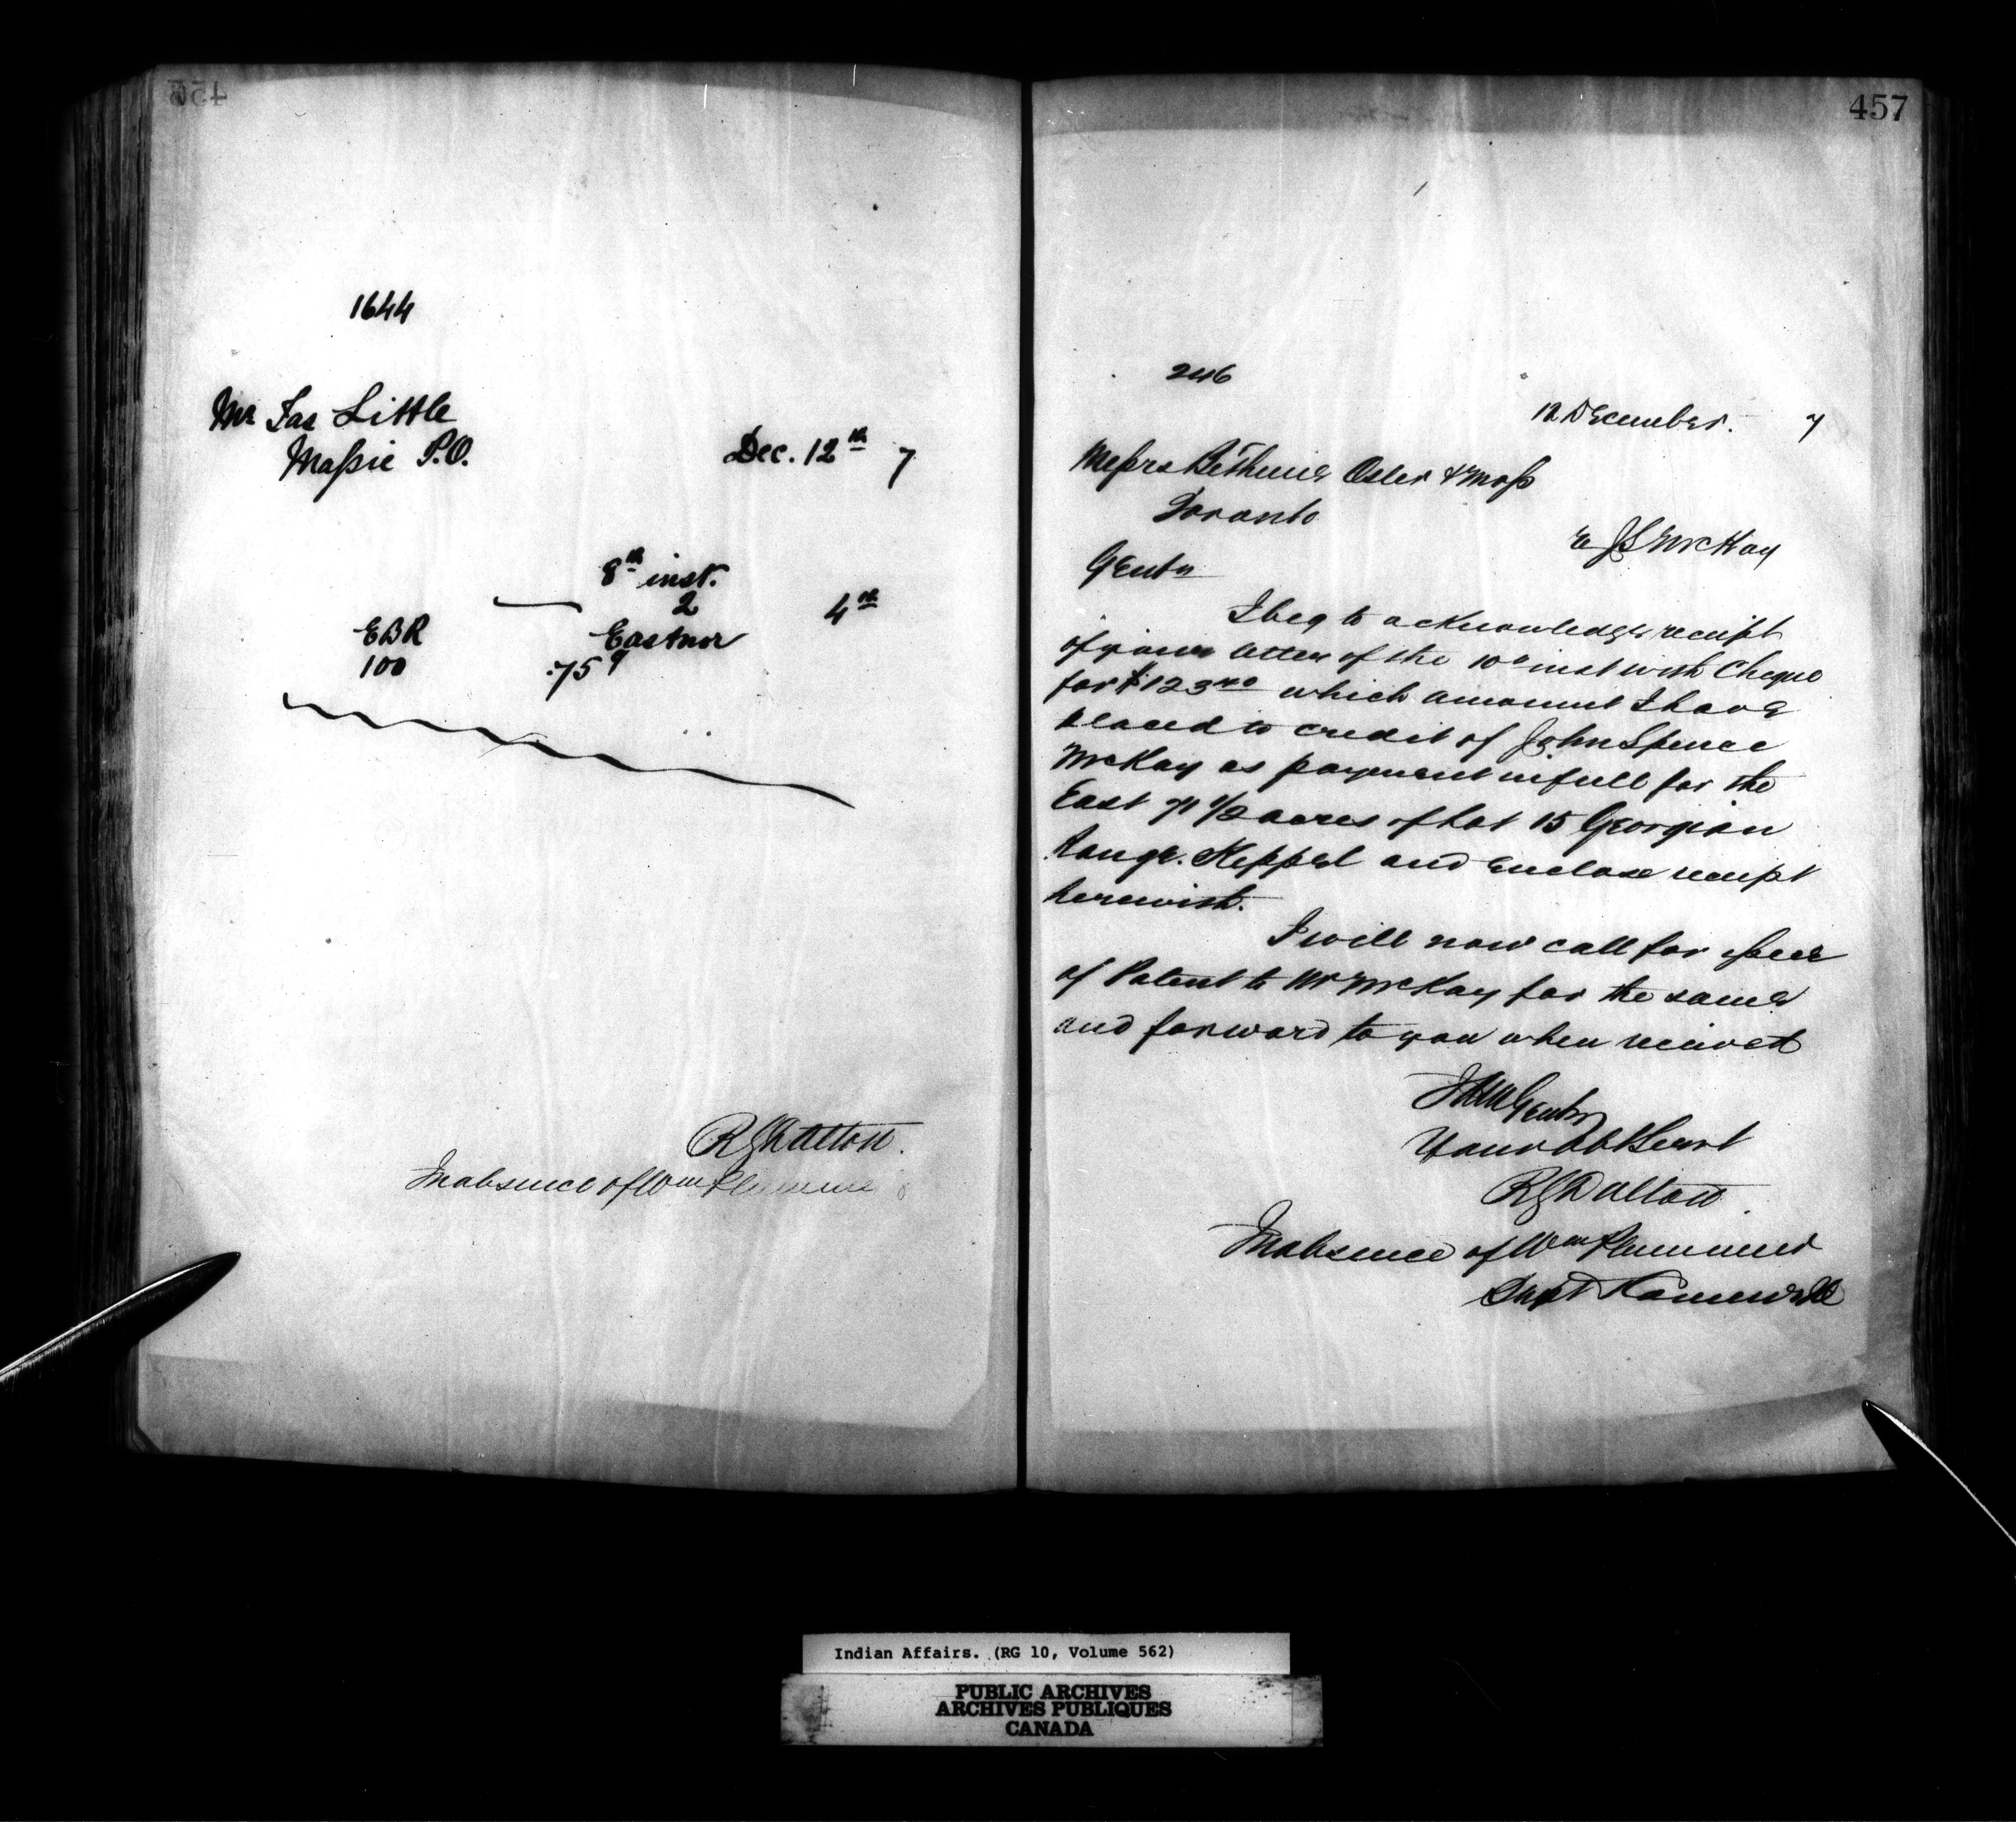 456
1644
Mr Jas Little
Massie P.O.
Dec. 12th 7
8th inst.
2 4th
EBR Eastnor
100 .75 9
RGDalton.
In absence of Wm Plummer
457
246
12 December. 7
Messrs Bethune Osler & Moss
Toronto
re JS McKay
Gents
I beg to acknowledge receipt
of your letter of the 10th inst with Cheque
for $123 40 which amount I have
placed to credit of John Spence
McKay as payment in full for the
East 71 1/2 acres of Lot 15 Georgian
Range. Keppel and enclose receipt
herewith.
I will now call for issue
of Patent to Mr McKay for the same
and forward to you when received
Gents
Your Obt Servt
RGDalton
In absence of Wm Plummer
Supt &
Indian Affairs. (RG 10, Volume 562)
PUBLIC ARCHIVES
ARCHIVES PUBLIQUES
CANADA